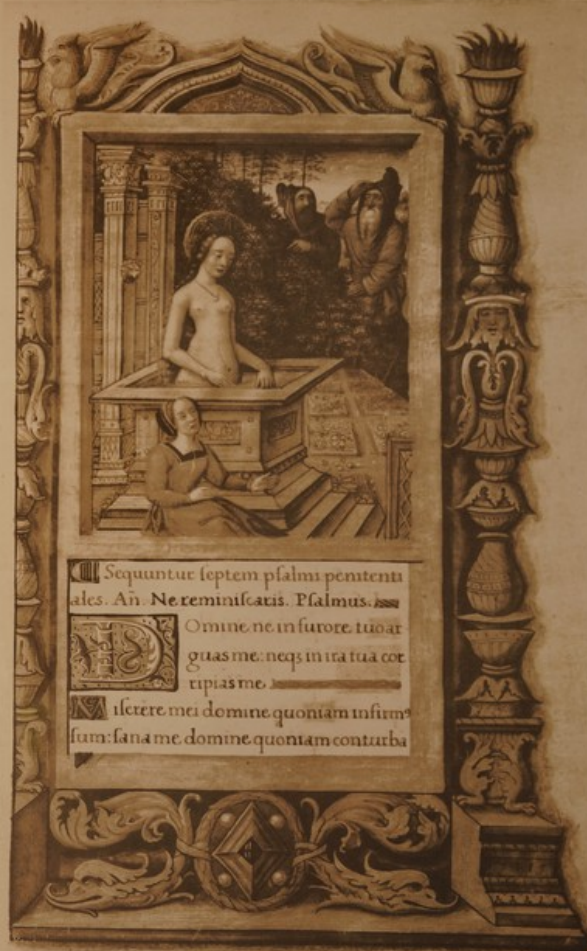 Sequuntur septem psalmi penitenti
ales. Añ. Ne reminiscaris. Psalmus.
DOmine ne in furore tuo ar
guas me: neqꝫ in ira tua cor
ripias me.
Miserere mei domine quoniam infirmꝰ
sum: sana me domine quoniam conturba